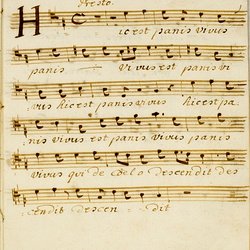 Presto.
H ic est panis vivus
panis vivus est panis vi
vus hic est panis vivus hic est pa
nis vivus est panis vivus est panis
vivus qui de Cœlo descendit des
cendit descen - - dit